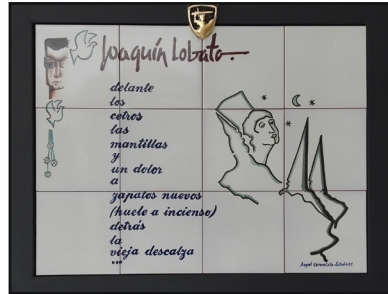 Joaquín Lobato.
delante
los
cetros
las
mantillas
y
un dolor
a
zapatos nuevos
(huele a incienso)
detrás
la
vieja descalza
...